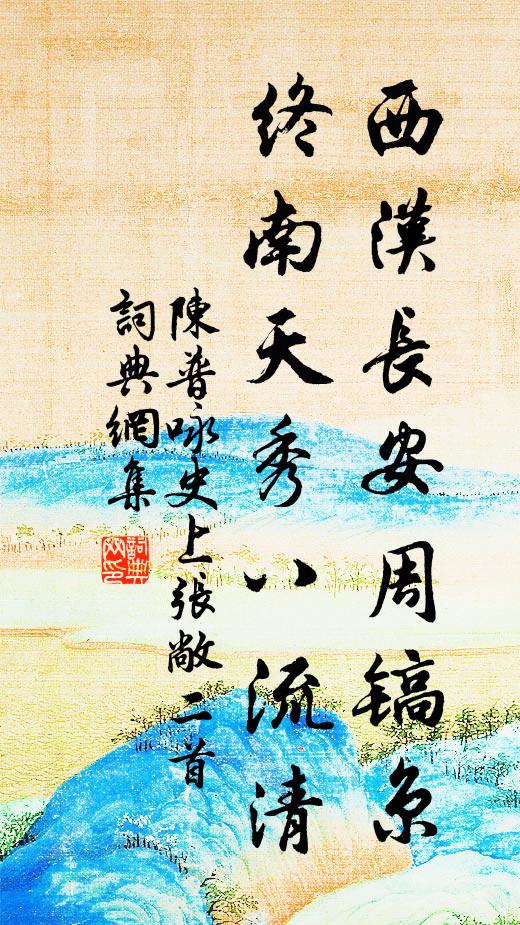 西漢長安周镐京
終南天秀八流清
陳普咏史上張敞二首
詞典網集
詞典網印